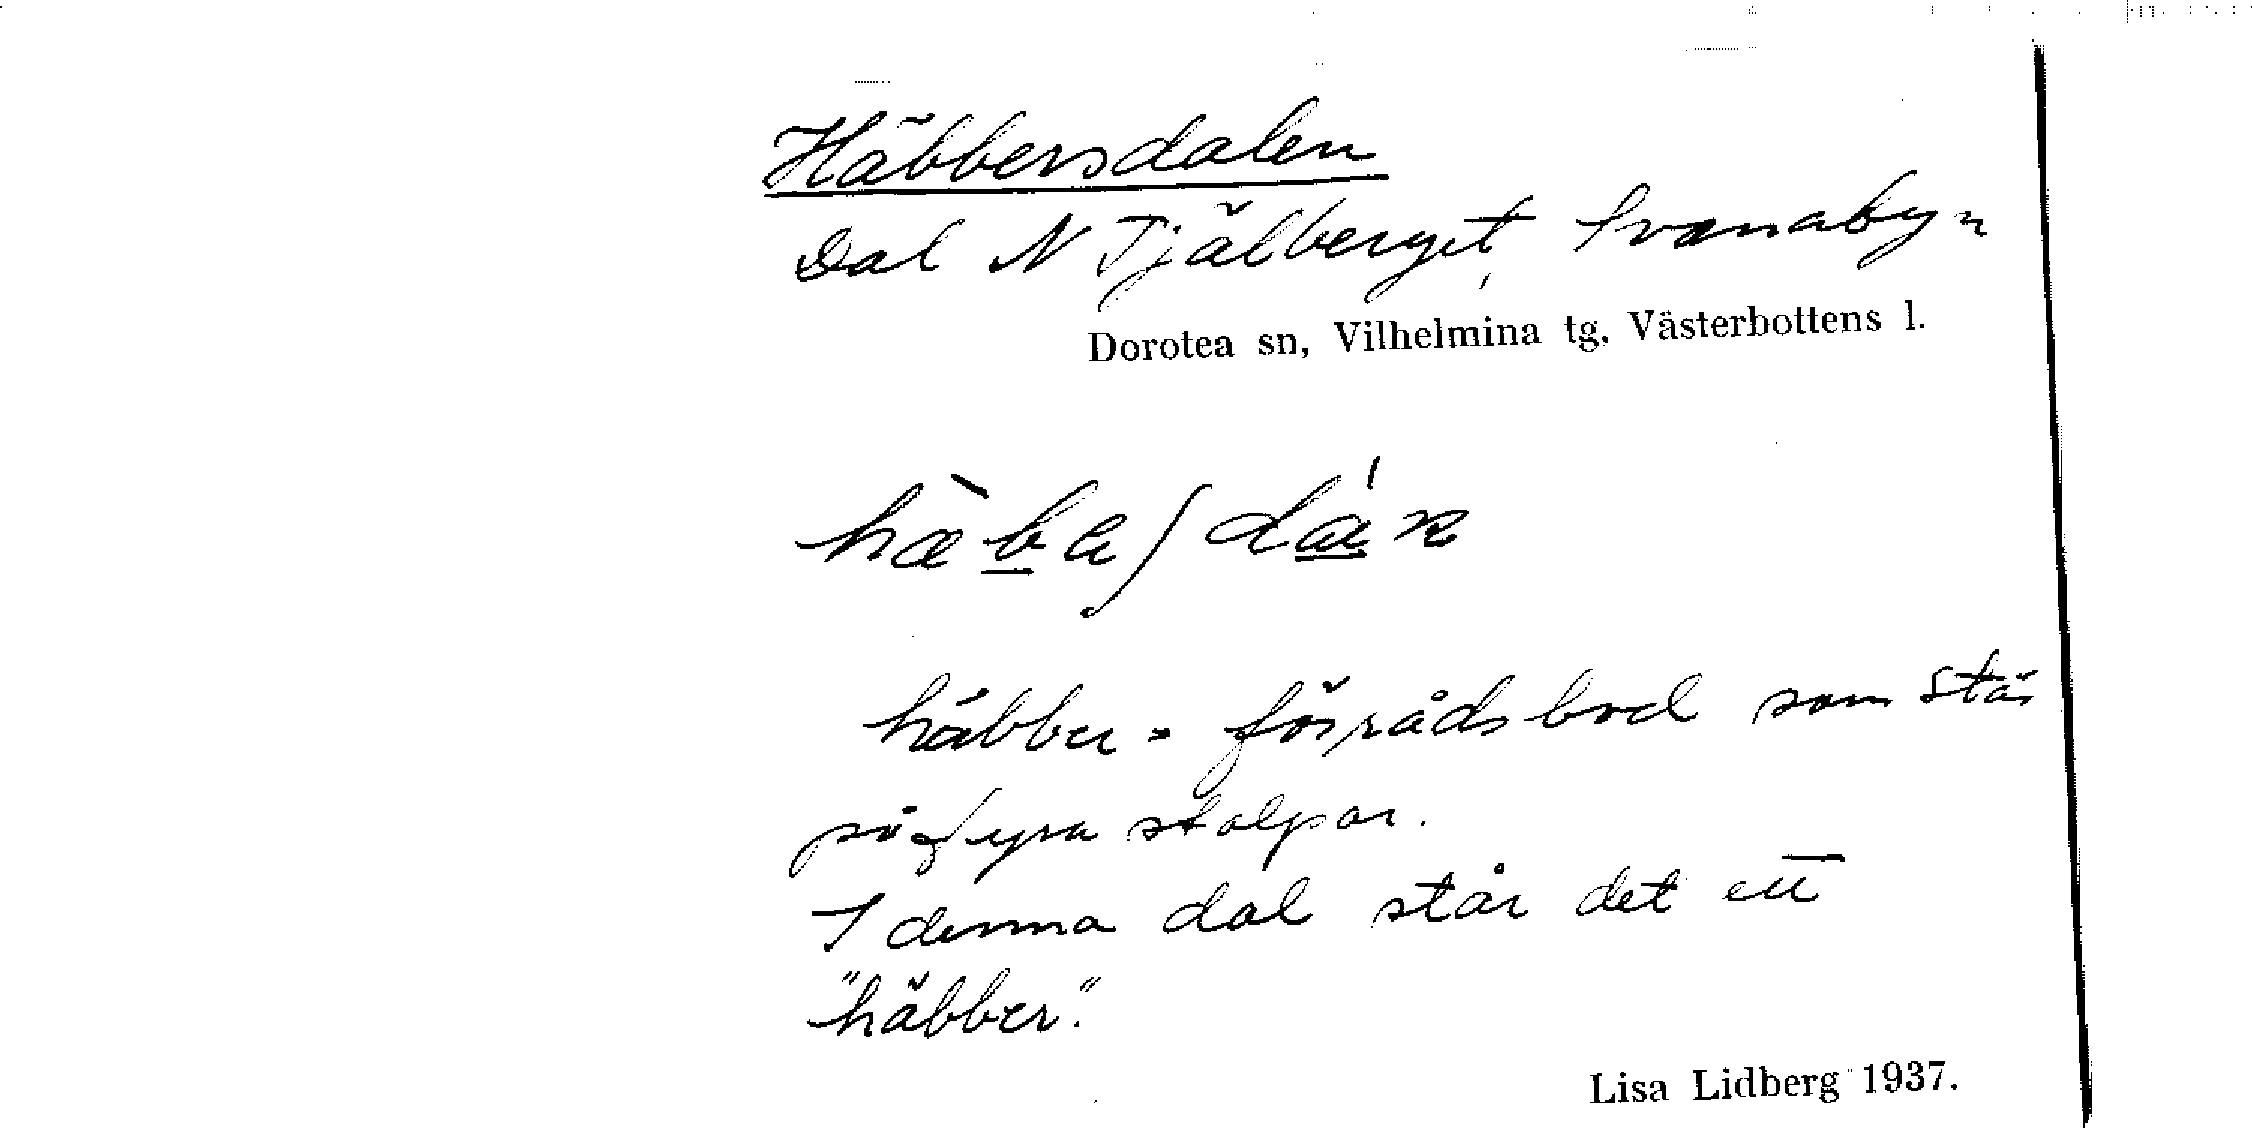 Häbbersdalen
Dal N Tjälberget, Svanabyn
Dorotea sn, Vilhelmina tg, Västerbottens l.
häbber = förrådsbod som står
på fyra stolpar.
I denna dal står det ett
"häbber".
Lisa Lidberg 1937.